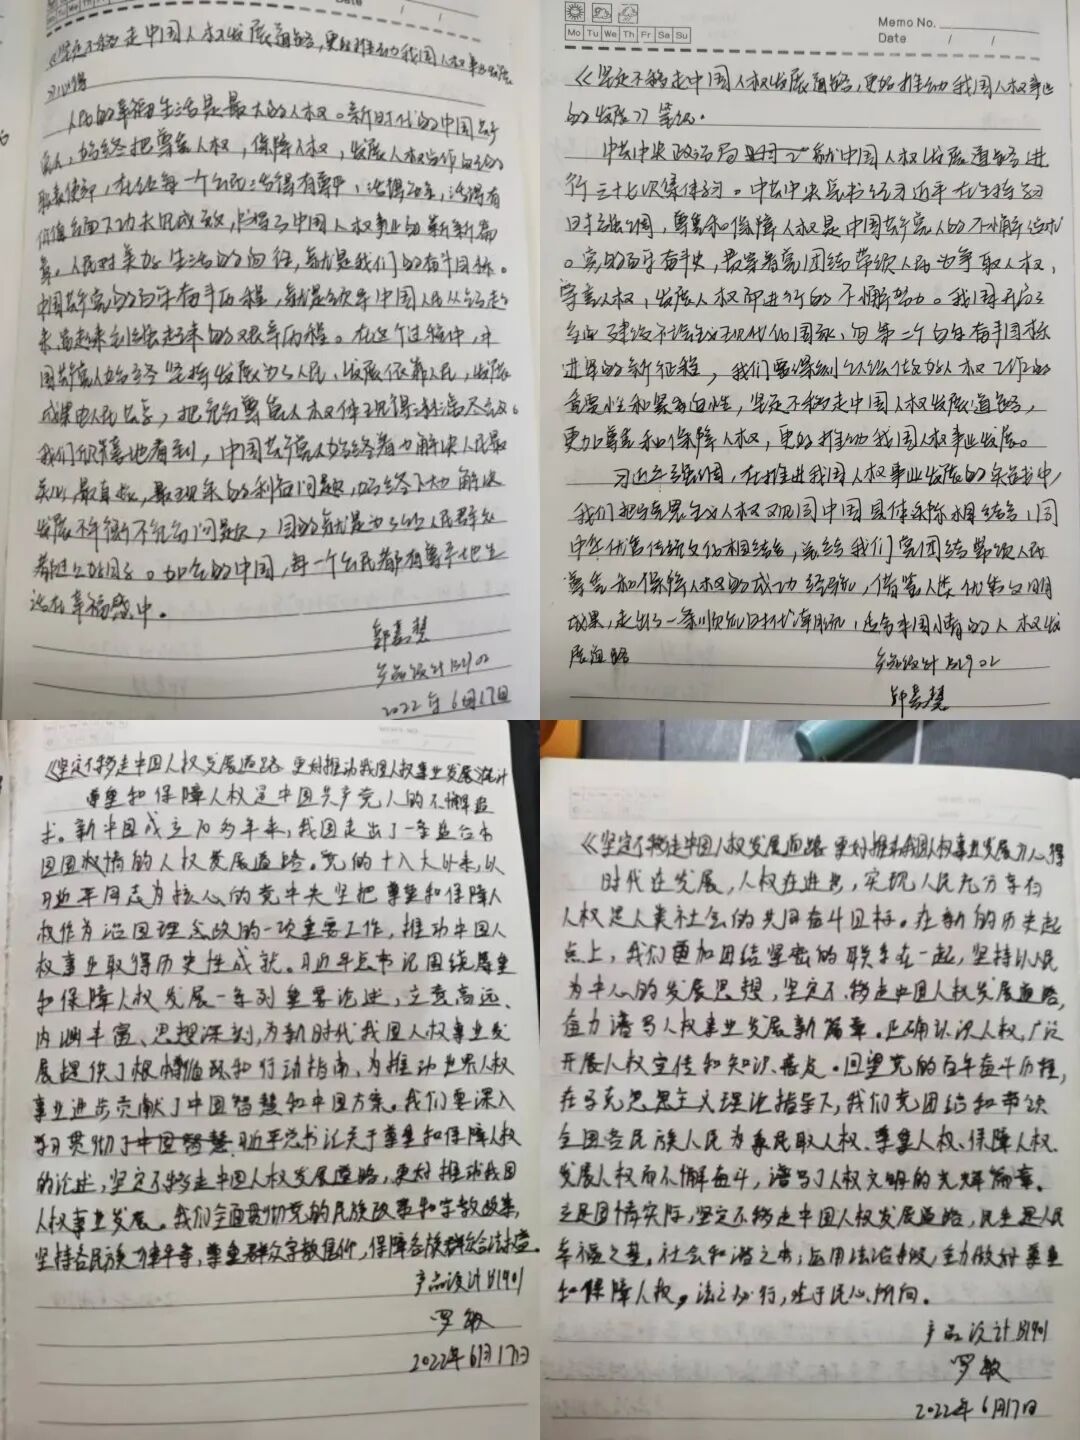 Date
《坚定不移走中国人权发展道路,更好推动我国人权事业发展》
心得
人民的幸福生活是最大的人权。新时代的中国共产
党人,始终把尊重人权,保障人权,发展人权当作
在让每一个公民活得有尊严,活得
价值方面下功夫见成效,中国人权事业的新新篇
章。人民对美好生活的向往,就是我们的奋斗目标。
中国共产党的百年奋斗历程,就是领导中国人民从站起
来富起来到强起来的艰辛历程。在这个过程中,中
国共产党人始终坚持发展为了人民、发展依靠人民,发展
成果由人民共享,把充分尊重人权体现得淋漓尽致。
我们欣喜地看到,中国共产党人始终着力解决人民最
关心,最直接,最现实的利益问题,始终下力解决
发展不平衡不充分问题,目的就是为了让人民群众
都过上好日子。如今的中国,每一个公民都有尊严地生
活在幸福感中。
郭嘉慧
产品设计B1902
2022年6月17日
Memo No.
Mo Tu We Th Fr Sa Su
Date / /
《坚定不移走中国人权发展道路,更好推动我国人权事业
的发展》笔记.
中共中央政治局就中国人权发展道路进
行三十七次集体学习。中共中央总书记习近平在主持学习
时强调,尊重和保障人权是中国共产党人的不懈追求
。党的百年奋斗史,贯穿着党团结带领人民为争取人权,
尊重人权,发展人权而进行的不懈努力。我国开启了
全面建设社会主义现代化国家,向第二个百年奋斗目标
进军的新征程,我们要深刻认识做好人权工作的
重要性和紧迫性,坚定不移走中国人权发展道路,
更加尊重和保障人权,更好推动我国人权事业发展。
习近平强调,在推进我国人权事业发展的实践中,
我们把马克思主义人权观同中国具体实际相结合,同
中华优秀传统文化相结合,总结我们党团结带领人民
尊重和保障人权的成功经验,借鉴人类优秀文明
成果,走出了一条顺应时代潮流,适合本国国情的人权发
展道路
产品设计B1902
郭嘉慧
《坚定不移走中国人权发展道路 更好推动我国人权事业发展》
尊重和保障人权是中国共产党人的不懈追
求。新中国成立70多年来,我国走出了一条适合本
国国情的人权发展道路。党的十八大以来,以
习近平同志为核心的党中央坚把尊重和保障人
权作为治国理念政的一项重要工作,推动中国人
权事业取得历史性成就。习近平总书记围绕尊重
和保障人权发展一系列重要论述,立意高远、
内涵丰富、思想深刻,为新时代我国人权事业发
展提供了根本遵循和行动指南,为推动世界人权
事业进步贡献了中国智慧和中国方案。我们要深入
学习贯彻习近平总书记关于尊重和保障人权
的论述,坚定不移走中国人权发展道路,更好推动我国
人权事业发展。我们全面贯彻党的民族政策和宗教政策,
坚持各民族一律平等,尊重群众宗教信仰,保障各族群众合法权益.
产品设计B1901
罗敏
2022年6月17日
《坚定不移走中国人权发展道路 更好推动我国人权事业发展》心得
时代在发展,人权在进步,实现人民充分享有
人权是人类社会的共同奋斗目标。在新的历史起
点上,我们更加团结紧密的联系在一起,坚持以人民
为中心的发展思想,坚定不移走中国人权发展道路,
奋力谱写人权事业发展新篇章。正确认识人权,广泛
开展人权宣传和知识普及。回望党的百年奋斗历程,
在马克思主义理论指导下,我们党团结和带领
全国各民族人民为争取人权、尊重人权、保障人权、
发展人权而不懈奋斗,谱写了人权文明的光辉篇章。
立足国情实际,坚定不移走中国人权发展道路,民生是人民
幸福之基,社会和谐之本;运用法治手段,全力做好尊重
和保障人权,法之必行,在于民心所向。
产品设计B1901
罗敏
2022年6月17日